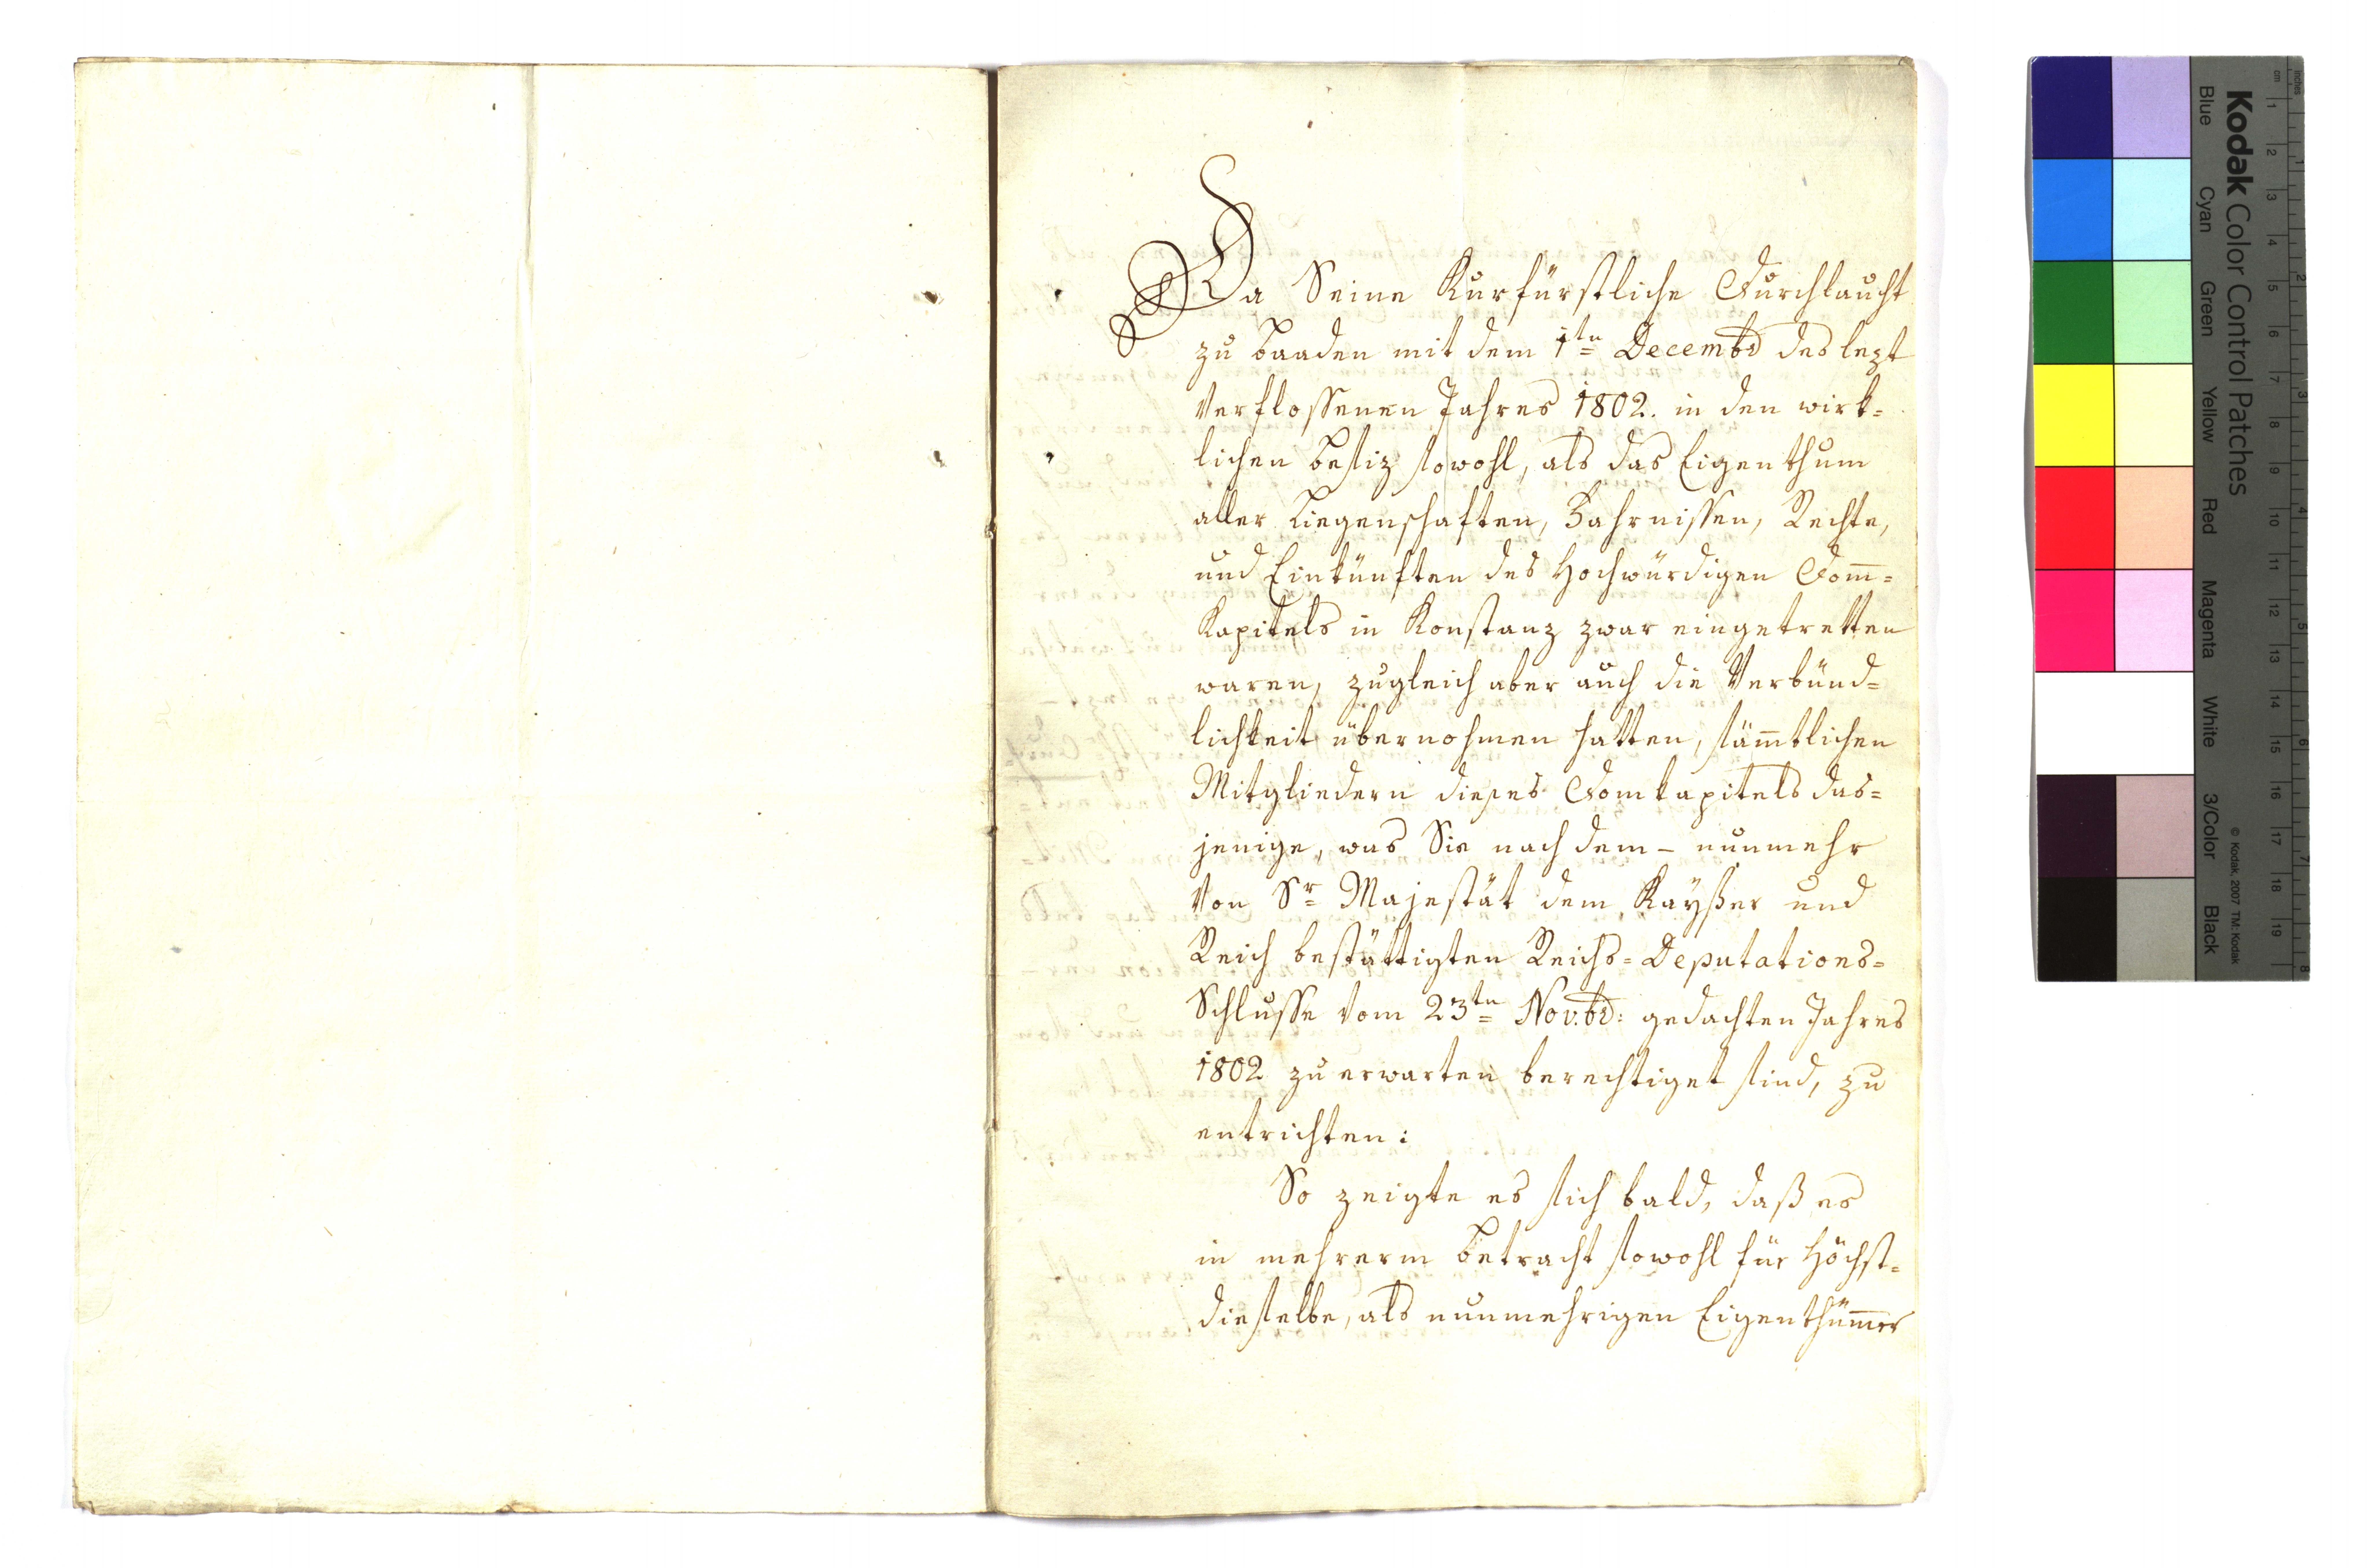 Da Seine Kurfürstliche Durchlaucht
zu Baaden mit dem 1ten Decembr des lezt
verflossenen Jahres 1802. in den wirk=
lichen Besiz sowohl, als das Eigenthum
aller Liegenschaften, Fahrnissen, Rechte,
und Einkünften des Hochwürdigen Dom̅=
Kapitels in Konstanz zwar eingetretten
waren, zugleich aber auch die Verbünd=
lichkeit übernohmen hatten, säm̅tlichen
Mitgliedern dieses Domkapitels das=
jenige, was Sie nach dem – nunmehr
von Sr Majestät dem Kayßer und
Reich bestättigten Reichs=Deputations=
Schlusse vom 23ten Nov.br: gedachten Jahres
1802 zu erwarten berechtiget sind, zu
entrichten:
So zeigte es sich bald, daß es
in mehrerm Betracht sowohl für Höchst=
dieselbe, als nunmehrigen Eigenthüm̅er
Kodak Color Control Patches
Blue Cyan Green Yellow Red Magenta White 3/Color Black
© Kodak, 2007 TM: Kodak
inches
cm
1 2 3 4 5 6 7 8 9 10 11 12 13 14 15 16 17 18 19
1 2 3 4 5 6 7 8